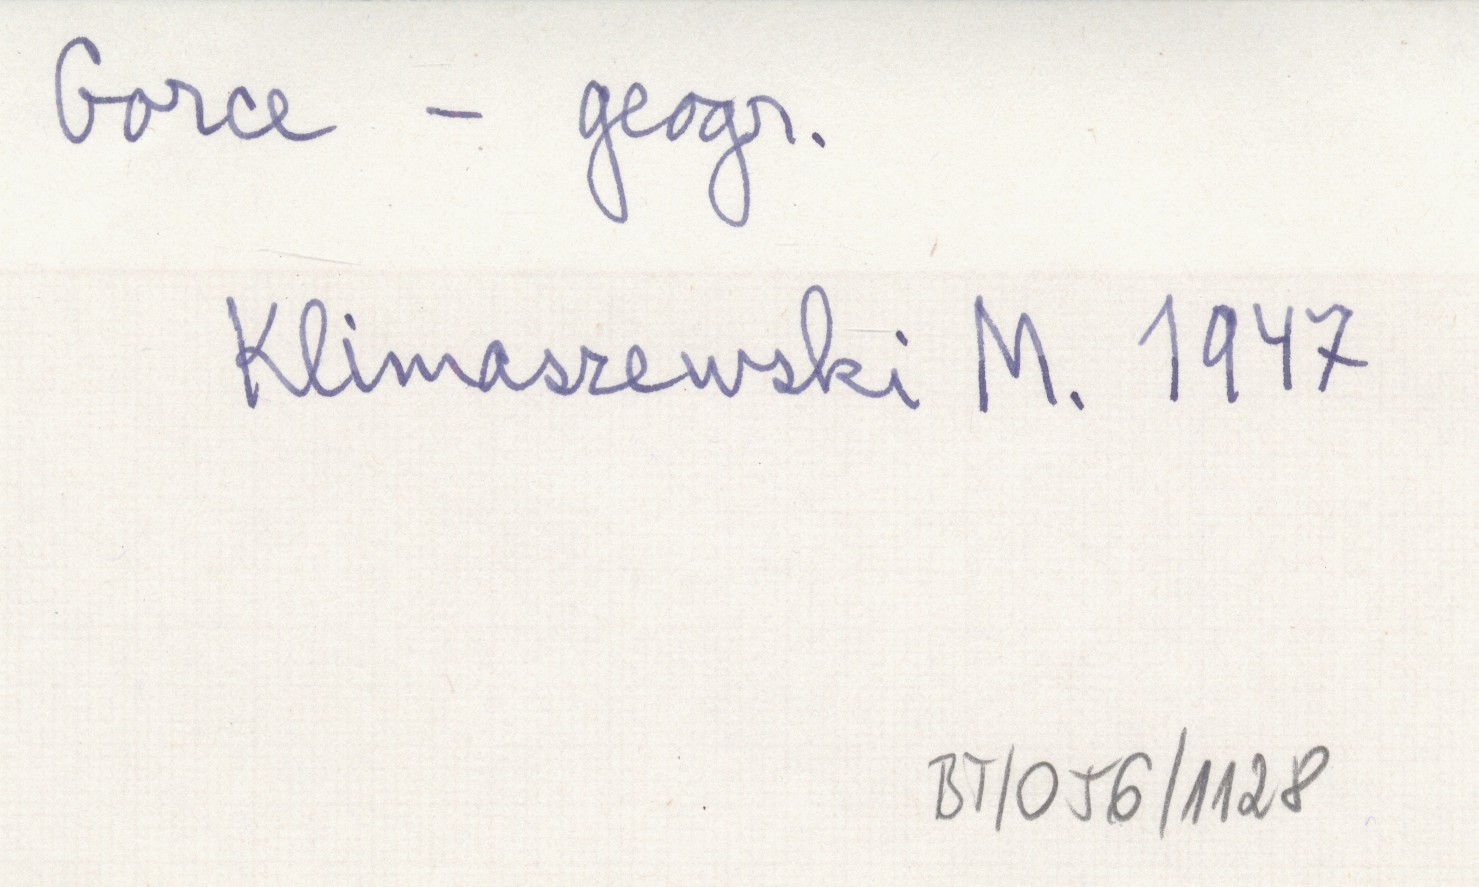 Gorce - geogr.
Klimaszewski M. 1947
BT/056/1128